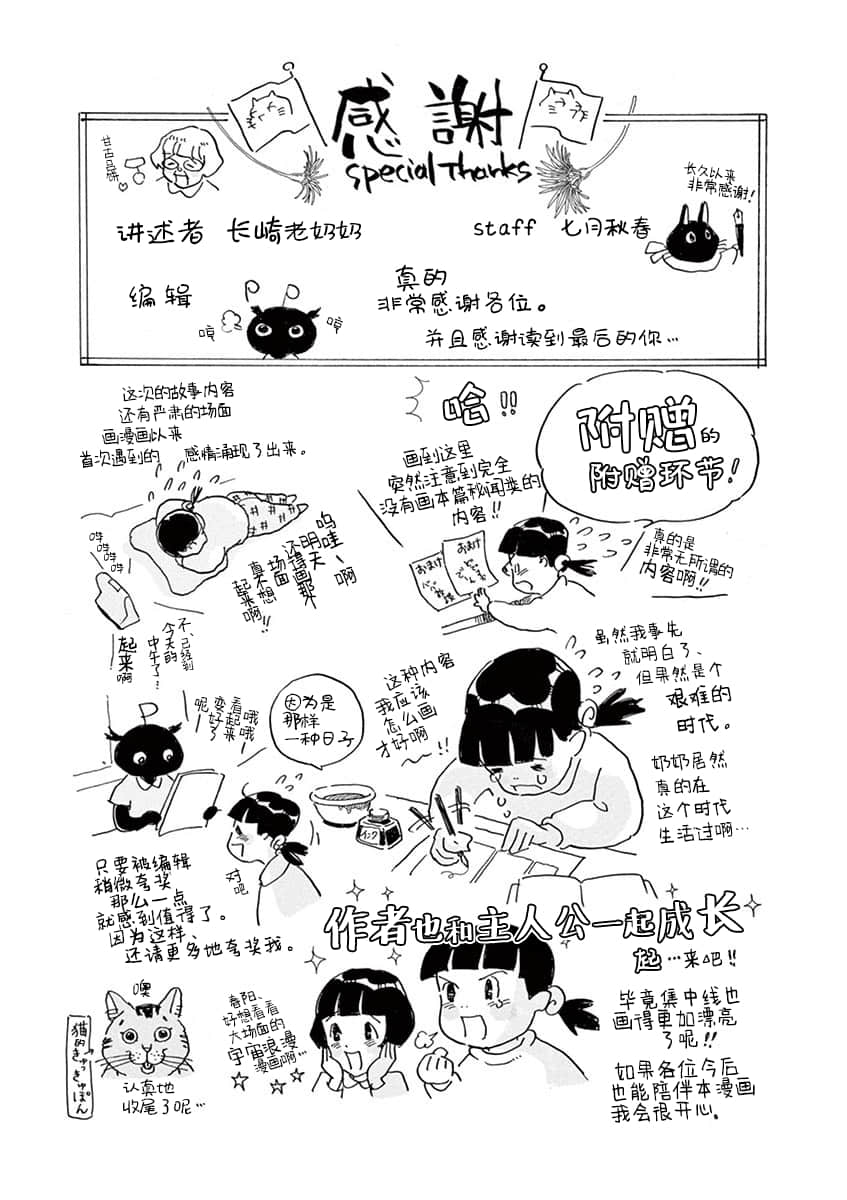 感謝
Special Thanks
长久以来
非常感谢!
讲述者 长崎老奶奶
staff 七月秋春
编辑
哼
哼
真的
非常感谢各位。
并且感谢读到最后的你…
附赠的
附赠环节!
哈!!
画到这里
突然注意到完全
没有画本篇秘闻类的
内容!!
真的是
非常无所谓的
内容啊!!
おまけ
おまけ
这次的故事内容
还有严肃的场面
画漫画以来
首次遇到的 感情涌现了出来。
呜哇、
明天
还得画那
场面啊
真不想
起来啊!!
哔哔哔哔
不、已经到
今天的
中午了…
起来啊
虽然我事先
就明白了、
但果然是个
艰难的
时代。
奶奶居然
真的在
这个时代
生活过啊…
这种内容
我应该
怎么画
才好啊
~!!
インク
因为是
那样
一种日子
哦哦
看起来
变好了
呢
对吧
只要被编辑
稍微夸奖
那么一点
就感到值得了。
因为这样、
还请更多地夸奖我。
作者也和主人公一起成长
起…来吧!!
毕竟集中线也
画得更加漂亮
了呢!!
如果各位今后
也能陪伴本漫画
我会很开心。
春阳、
好想看看
大场面的
宇宙浪漫
漫画啊…
噢
猫的きゅっきゅぽん
认真地
收尾了呢…